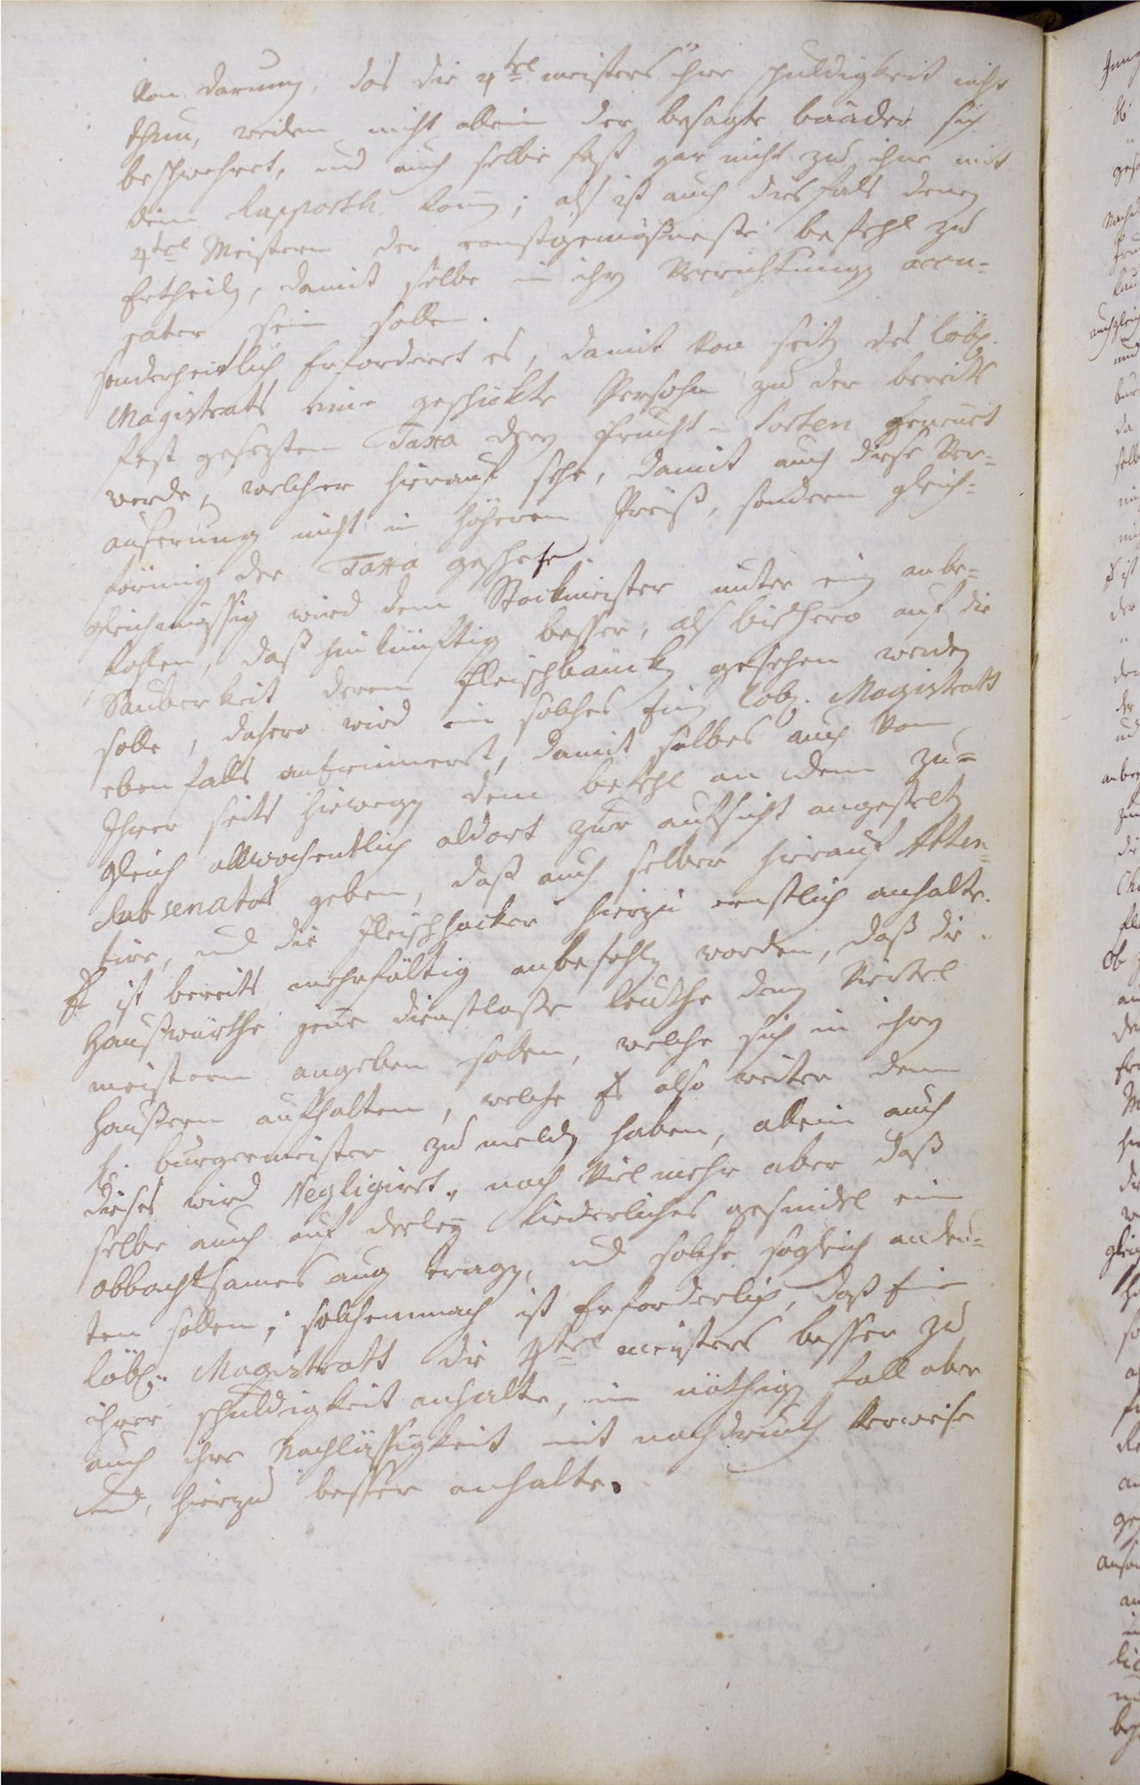 Von darumb, das die 4tel meisters ihre schuldigkeit nicht
thun, weilen nicht allein der besagte baader sich
beschwehret, und auch selbe fast gar nicht zu ihme mit
dem Rapporth kom̅; als ist auch diesfals denen
4tel Meistern der ernstgemässneste befehl zu
Ertheilen, damit selbe in ihren Verrichtungen accu-
rater sein sollen.
sonderheitlich Erfordert es, damit Von seiten des löbl.
Magistrats eine geschickte Persohn zu der bereits
fest gesezten Taxa deren frucht-Sorten
werde, welcher hierauf sehe, damit auch diese Ver-
äuserung nicht in höheren Preiß, sondern gleich-
förmig der Taxa geschehe
gleichmässig wird dem Stockmeister unter ein anbe-
fohlen, daß hinkünftig besser, als bishero auf die
Sauberkeit deren fleischbänken gesehen werden
solle, dahero wird ein solches Ein löbl. Magistratt
ebenfalls anerinnert, damit selbes auch Von
Ihrer seits hiewegen dem befehl an dem zu-
gleich allwochentlich aldort zur aufsicht angestelten
Subsenator geben, daß auch selber hierauf Atten-
tire, und die Fleischhacker hierzu ernstlich anhalte.
Es ist bereits mehrfältig anbefohlen worden, daß die
Haußwürthe jene dienstlosse leuthe denen Viertel
meistern angeben sollen, welche sich in ihren
Häußern aufhalten, welche Es also weiter dem
H. burgermeister zu melden haben, allein auch
dieses wird Negligiret, noch Viel mehr aber daß
selbe auch auf derley liederliches gesindel ein
obbachtsames aug tragen, und solche sogleich andeu-
ten sollen; solchemnach ist Erforderlich, daß Ein
löbl. Magistratt die 4tel meisters besser zu
ihrer schuldigkeit anhalte, im nöthigen fall aber
auch ihre Nachlässigkeit mit nachdruck Verweise
und, hierzu besser anhalte.